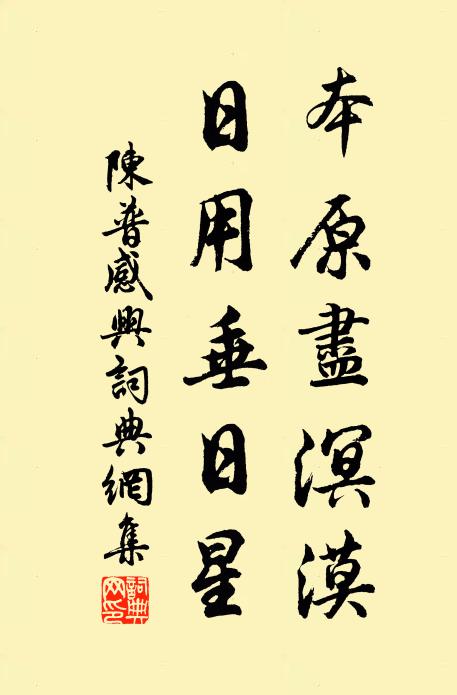 本原盡溟漠
日用垂日星
陳普感興詞典網集
詞典网印